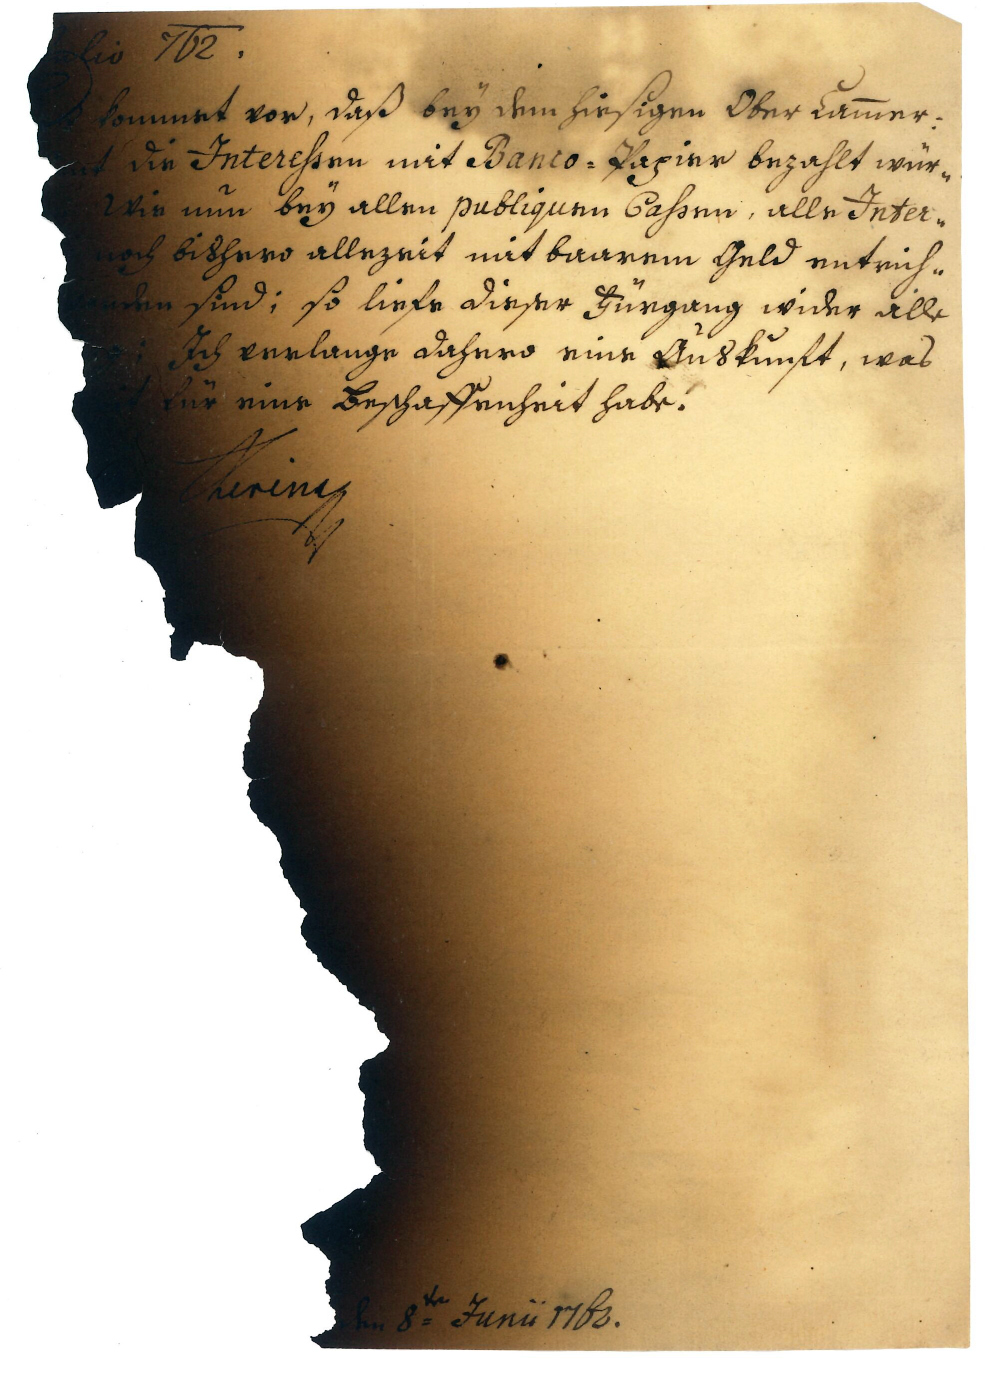 762.
kommet vor, daß bey dem hiesigen Ober Cam̄er-
die Interessen mit Banco-Papier bezahlt wür-
Wie nun bey allen publiquen Cassen, alle Inter-
noch bishero allezeit mit baarem Geld entrich-
sind; so liefe dieser Fürgang wider alle
Ich verlange dahero eine Auskunft, was
für eine Beschaffenheit habe.
den 8ten Junii 1763.